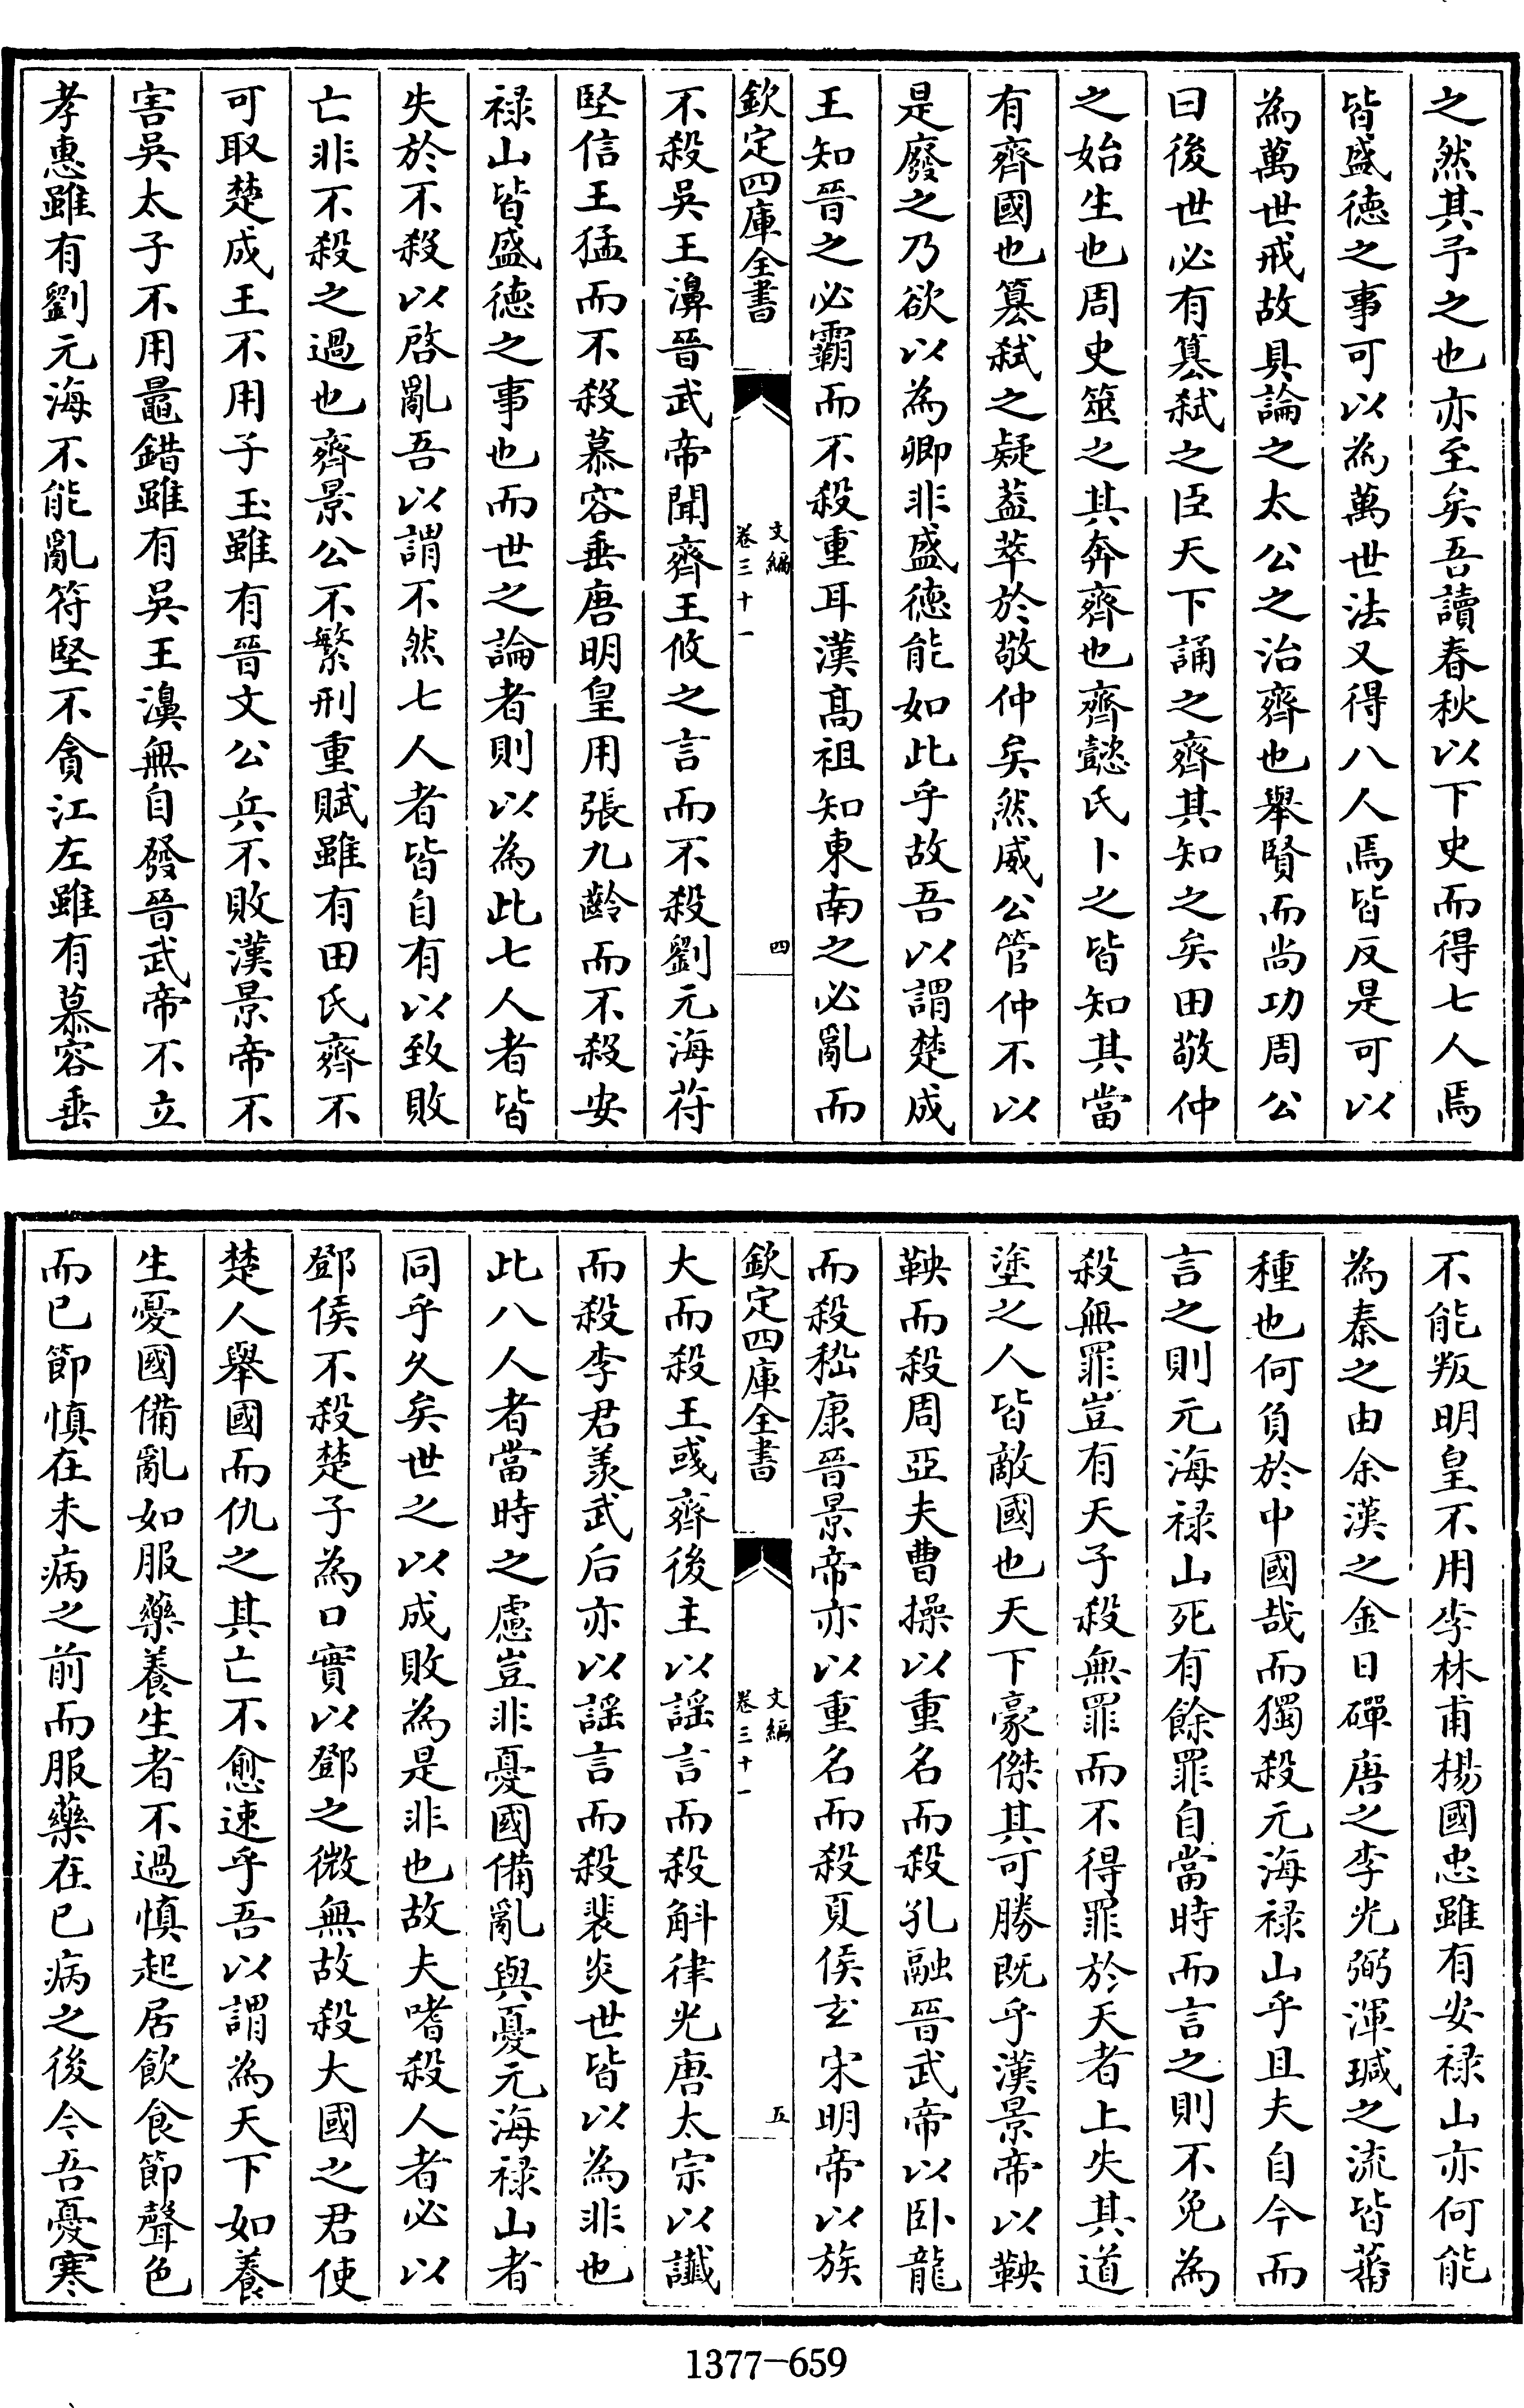 之然其予之也亦至矣吾讀春秋以下史而得七人焉
皆盛徳之事可以為萬世法又得八人焉皆反是可以
為萬世戒故具論之太公之治齊也舉賢而尚功周公
曰後世必有簒弑之臣天下誦之齊其知之矣田敬仲
之始生也周史筮之其奔齊也齊懿氏卜之皆知其當
有齊國也簒弑之疑葢萃於敬仲矣然威公管仲不以
是廢之乃欲以為卿非盛徳能如此乎故吾以謂楚成
王知晉之必霸而不殺重耳漢髙祖知東南之必亂而
欽定四庫全書
文編
卷三十一
四
不殺吳王濞晉武帝聞齊王攸之言而不殺劉元海苻
堅信王猛而不殺慕容垂唐明皇用張九齡而不殺安
禄山皆盛徳之事也而世之論者則以為此七人者皆
失於不殺以啓亂吾以謂不然七人者皆自有以致敗
亡非不殺之過也齊景公不繁刑重賦雖有田氏齊不
可取楚成王不用子玉雖有晉文公兵不敗漢景帝不
害吳太子不用鼂錯雖有吳王濞無自發晉武帝不立
孝惠雖有劉元海不能亂符堅不貪江左雖有慕容垂
不能叛明皇不用李林甫楊國忠雖有安禄山亦何能
為秦之由余漢之金日磾唐之李光弼渾瑊之流皆蕃
種也何負於中國哉而獨殺元海禄山乎且夫自今而
言之則元海禄山死有餘罪自當時而言之則不免為
殺無罪豈有天子殺無罪而不得罪於天者上失其道
塗之人皆敵國也天下豪傑其可勝既乎漢景帝以鞅
鞅而殺周亞夫曹操以重名而殺孔融晉武帝以卧龍
而殺嵇康晉景帝亦以重名而殺夏侯玄宋明帝以族
欽定四庫全書
文編
卷三十一
五
大而殺王彧齊後主以謡言而殺斛律光唐太宗以讖
而殺李君羨武后亦以謡言而殺裴炎世皆以為非也
此八人者當時之慮豈非憂國備亂與憂元海禄山者
同乎久矣世之以成敗為是非也故夫嗜殺人者必以
鄧侯不殺楚子為口實以鄧之微無故殺大國之君使
楚人舉國而仇之其亡不愈速乎吾以謂為天下如養
生憂國備亂如服藥養生者不過慎起居飲食節聲色
而已節慎在未病之前而服藥在已病之後今吾憂寒
1377-659